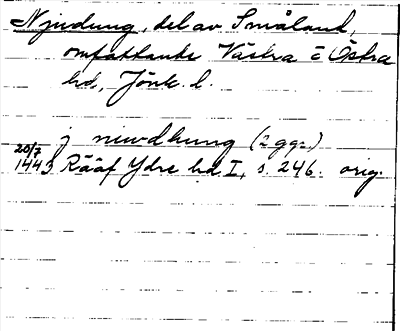 Njudung, del av Småland,
omfattande Västra o Östra
hd, Jönk. l.
j niwdhung (2 ggr)
20/7
1443 Rääf Ydre hd I, s. 246. orig.